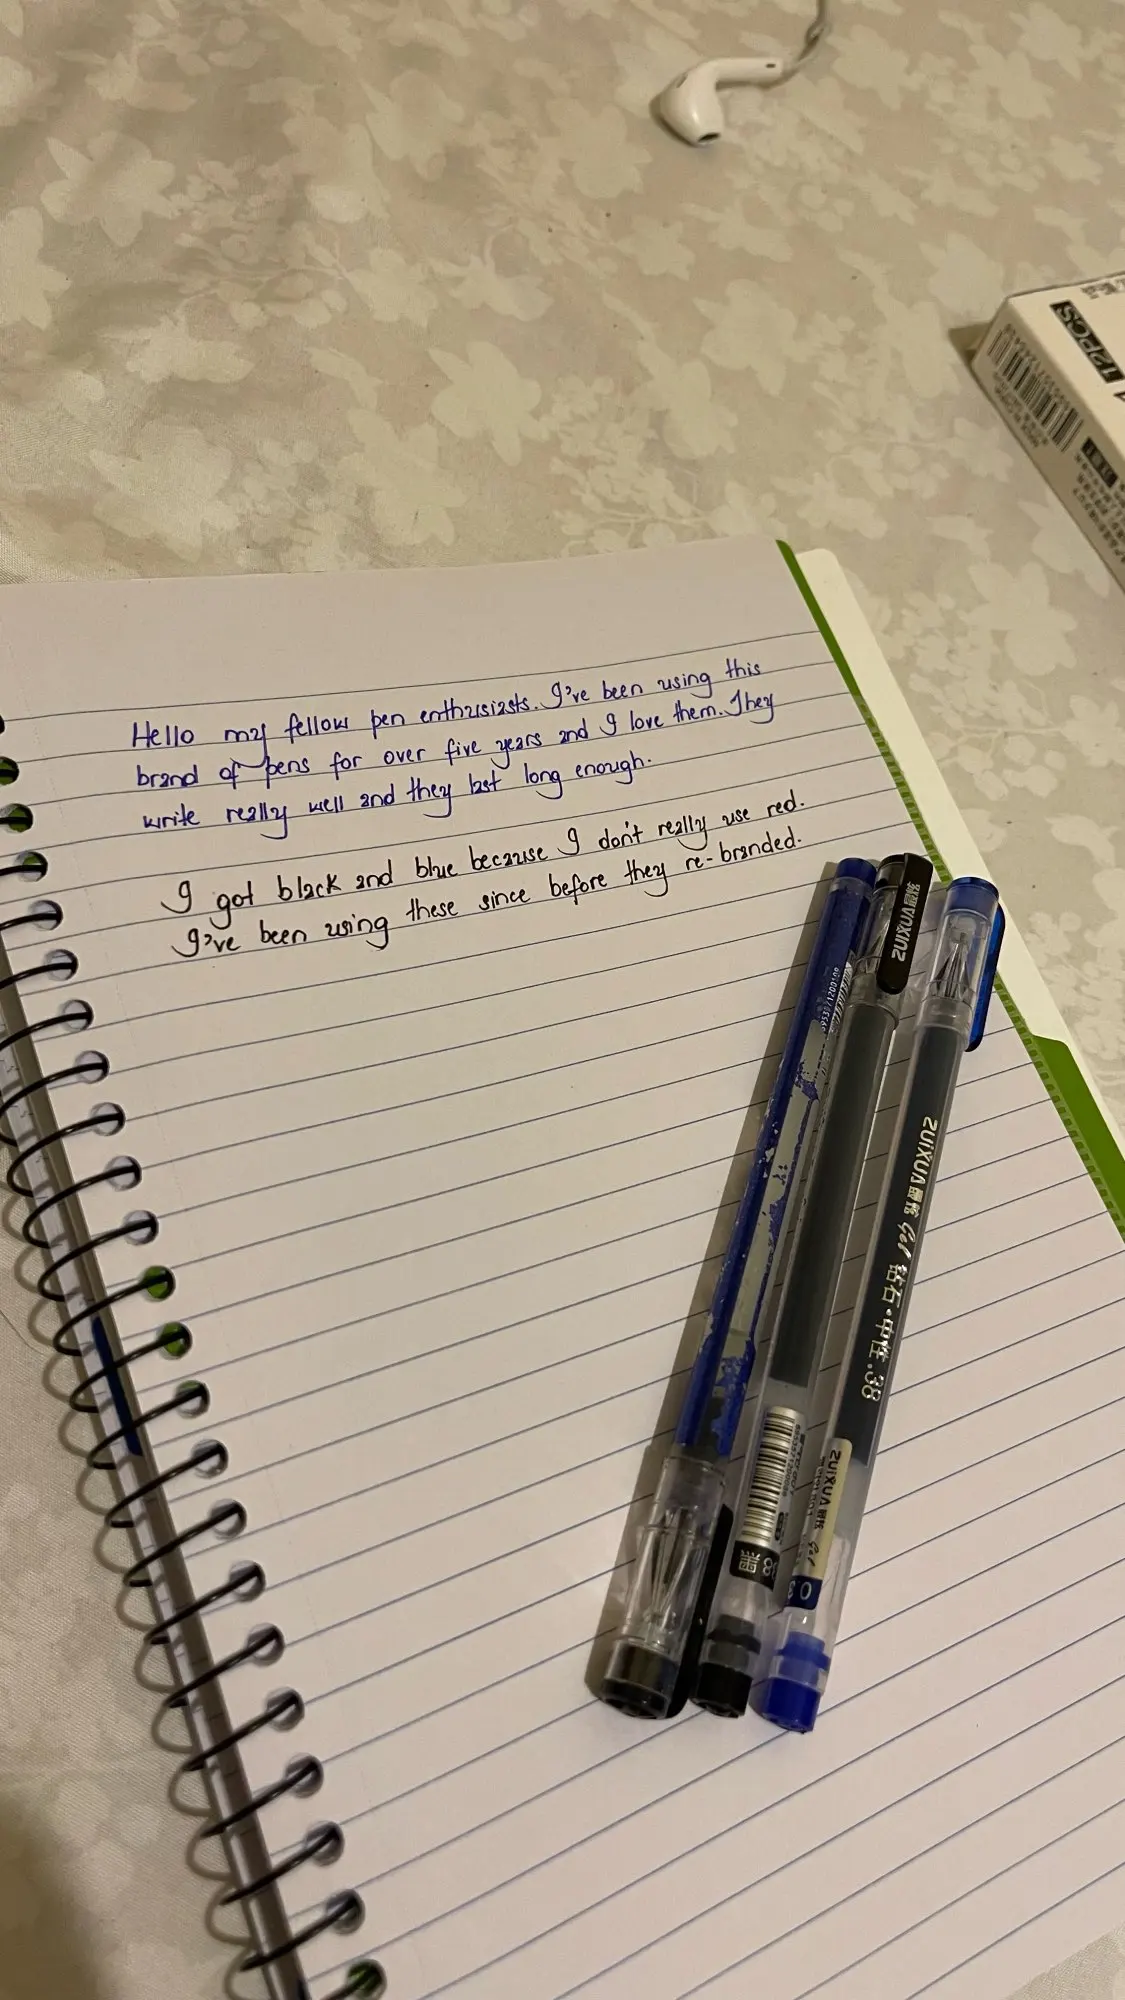 12PCS
Hello my fellow pen enthusiasts. I've been using this
brand of pens for over five years and I love them. They
write really well and they last long enough.
I got black and blue because I don't really use red.
I've been using these since before they re-branded.
ZUIXUA
ZUIXUA Gel 钻石·中性 .38
ZUIXUA
Gel